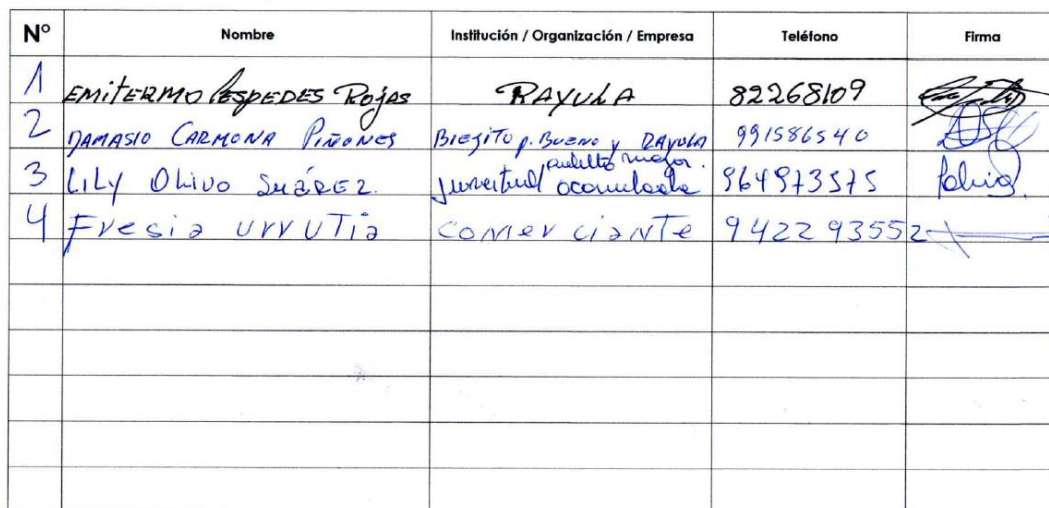 N° Nombre Institución / Organización / Empresa Teléfono Firma
1 EMITERMO CESPEDES ROJAS RAYULA 82268109
2 DAMASIO CARMONA PIÑONES BIEJITO p. BUENO y RAYULA 991586540
3 LILY OLIVO SUÁREZ. juventud acumulada adulto mayor. 964973575
4 Fresia URRUTia comerciante 942293552